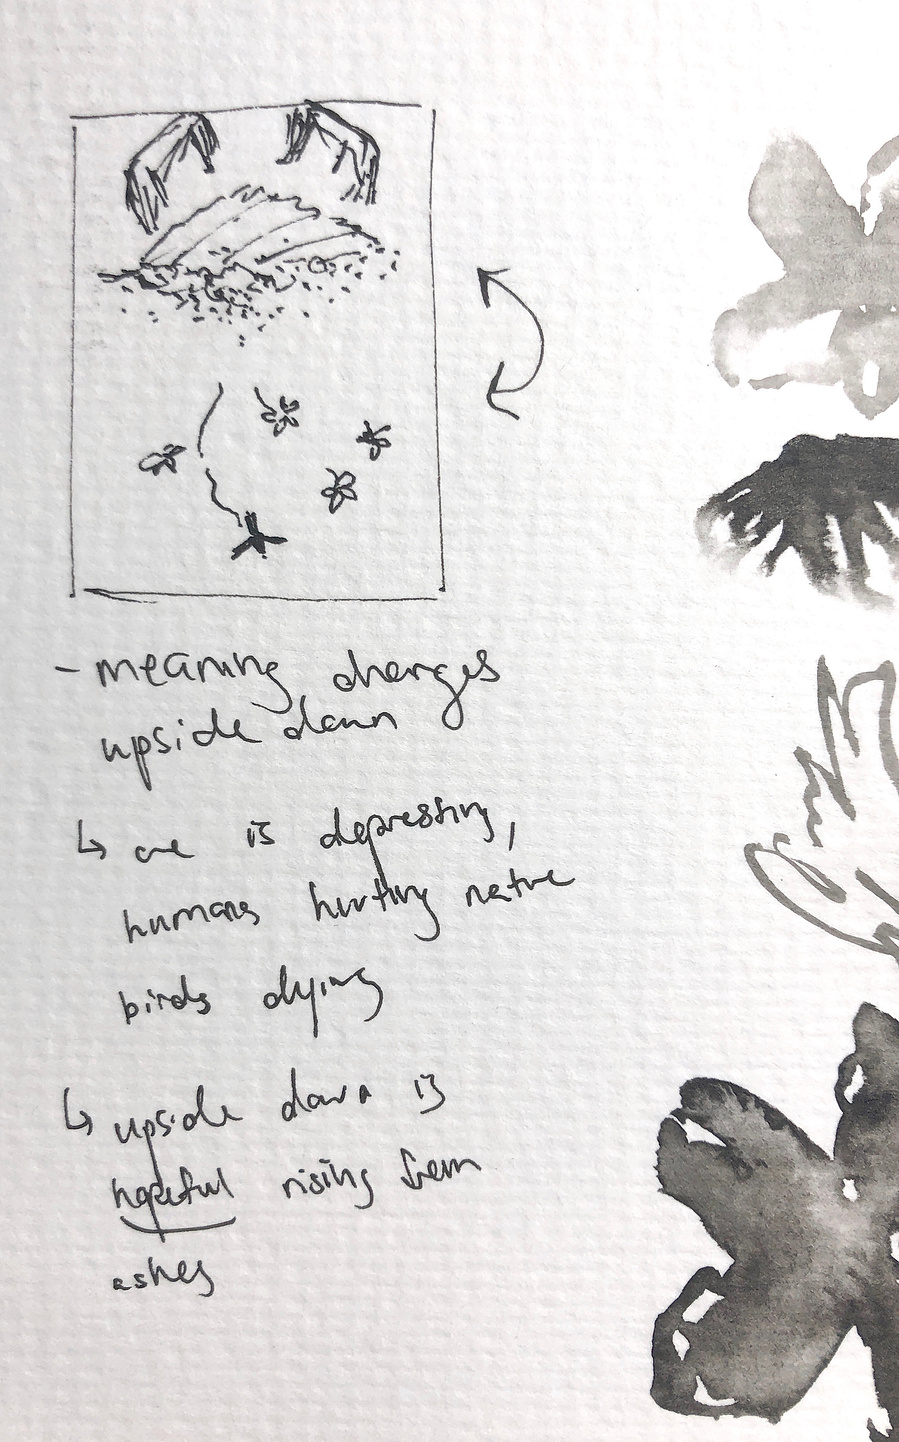 - meaning changes
upside down
↳ one is depressing,
humans hurting nature
birds dying
↳ upside down is
hopeful rising from
ashes